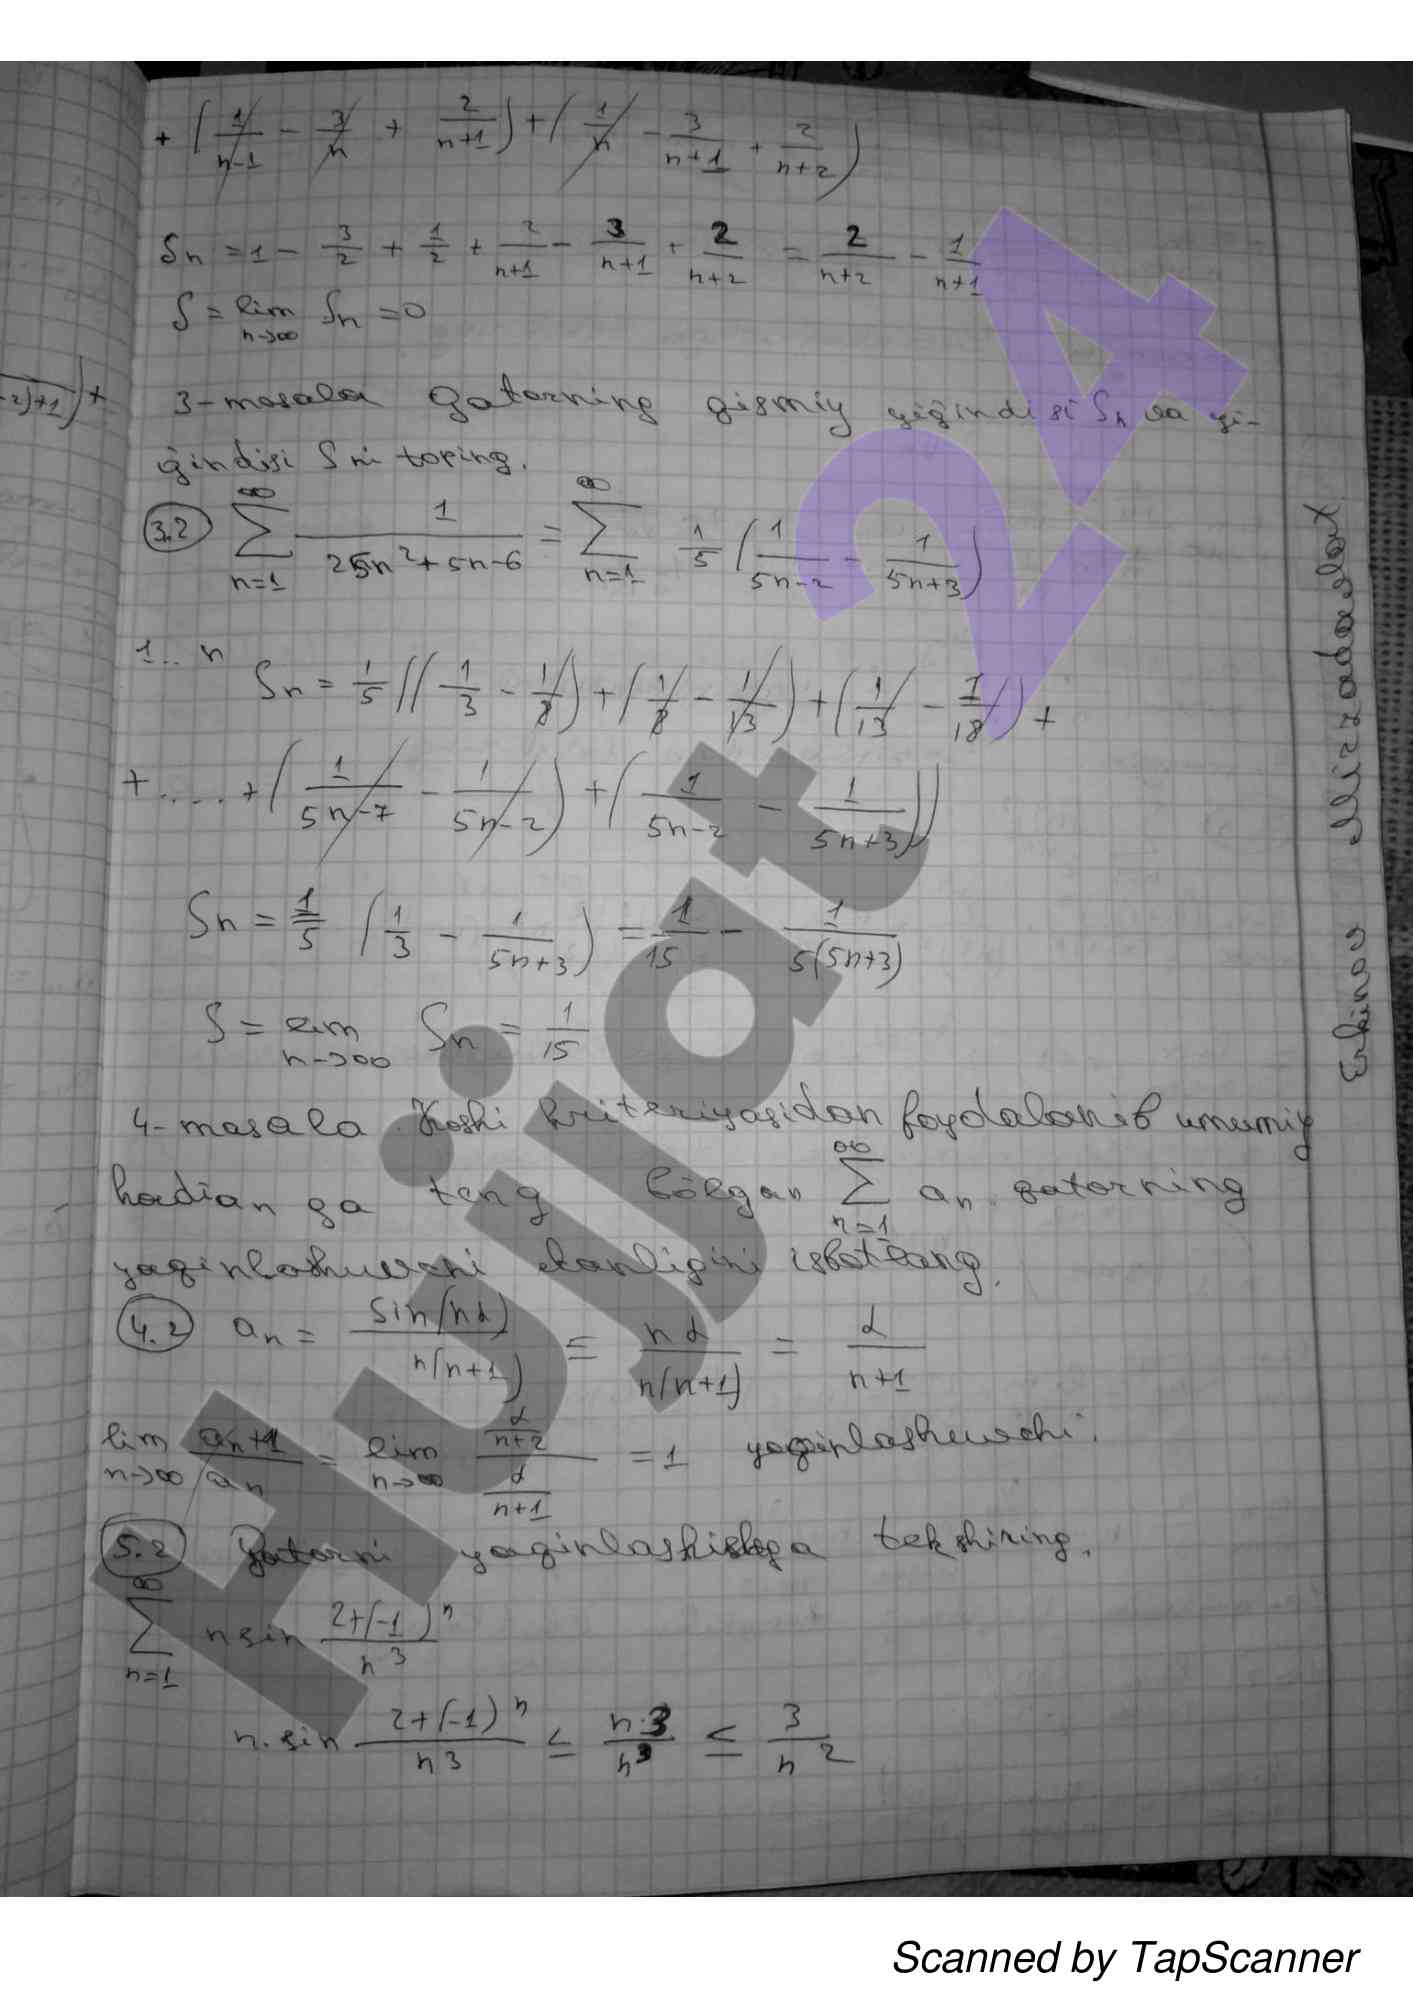 + (1/(n-1) - 3/n + 2/(n+1)) + (1/n - 3/(n+1) + 2/(n+2))
Sn = 1 - 3/2 + 1/2 + 2/(n+1) - 3/(n+1) + 2/(n+2) = 2/(n+2) - 1/(n+1)
S = lim n→∞ Sn = 0
-2)+1) +
3-masala Qatorning qismiy yiğindisi Sn va yi-
ğindisi S ni toping.
3.2 ∑ n=1 ∞ 1/(25n²+5n-6) = ∑ n=1 ∞ 1/5 (1/(5n-2) - 1/(5n+3))
1... n
Sn = 1/5 ((1/3 - 1/8) + (1/8 - 1/13) + (1/13 - 1/18) +
+ .... + (1/(5n-7) - 1/(5n-2)) + (1/(5n-2) - 1/(5n+3)))
Sn = 1/5 (1/3 - 1/(5n+3)) = 1/15 - 1/(5(5n+3))
S = lim n→∞ Sn = 1/15
4-masala Koshi kriteriyasidan foydalanib umumiy
hadi an ga teng bõlgan ∑ n=1 ∞ an qatorning
yaqinlashuvchi ekanligini isbotlang.
4.2 an = sin(nα)/(n(n+1)) ≤ nα/(n(n+1)) = α/(n+1)
lim n→∞ an+1/an = lim n→∞ (α/(n+2))/(α/(n+1)) = 1 yaqinlashuvchi.
5.2 Qatorni yaqinlashishga tekshiring.
∑ n=1 ∞ n sin (2+(-1)^n)/n³
n·sin (2+(-1)^n)/n³ ≤ n·3/n³ ≤ 3/n²
Erkinov Mirzadavlat
Hujjat 24
Scanned by TapScanner